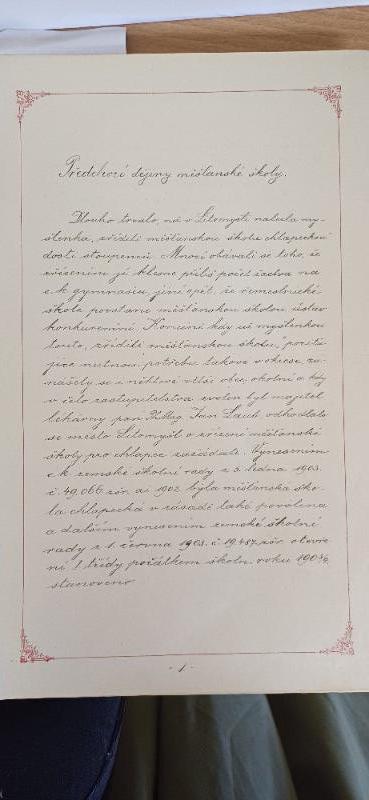 Předchozí dějiny měšťanské školy.
Dlouho trvalo, než v Litomyšli nabyla my-
šlenka, zříditi měšťanskou školu chlapeckou
dosti stoupenců. Mnozí obávali se toho, že
zřízením jí klesne příliš počet žactva na
c. k. gymnasiu, jiní opět, že řemeslnické
škole povstane měšťanskou školou ústav
konkurenční. Konečně když už myšlenkou
touto, "zříditi měšťanskou školu," pociťu-
jíce nutnou potřebu takové v okrese, za-
nášely se i některé větší obce okolní a když
v čelo zastupitelstva zvolen byl majitel
lékárny pan PhMag. Jan Laub odhodlalo
se město Litomyšl o zřízení měšťanské
školy pro chlapce zažádati. Vynesením
c. k. zemské školní rady z 3. ledna 1903.
č. 49.066 z. š. r. ai 1902 byla měšťanská ško-
la chlapecká v zásadě také povolena
a dalším vynesením zemské školní
rady z 1. června 1903. č. 19.457 z. š. r. otevře-
ní I. třídy počátkem školn. roku 1903/4
stanoveno
- 1 -